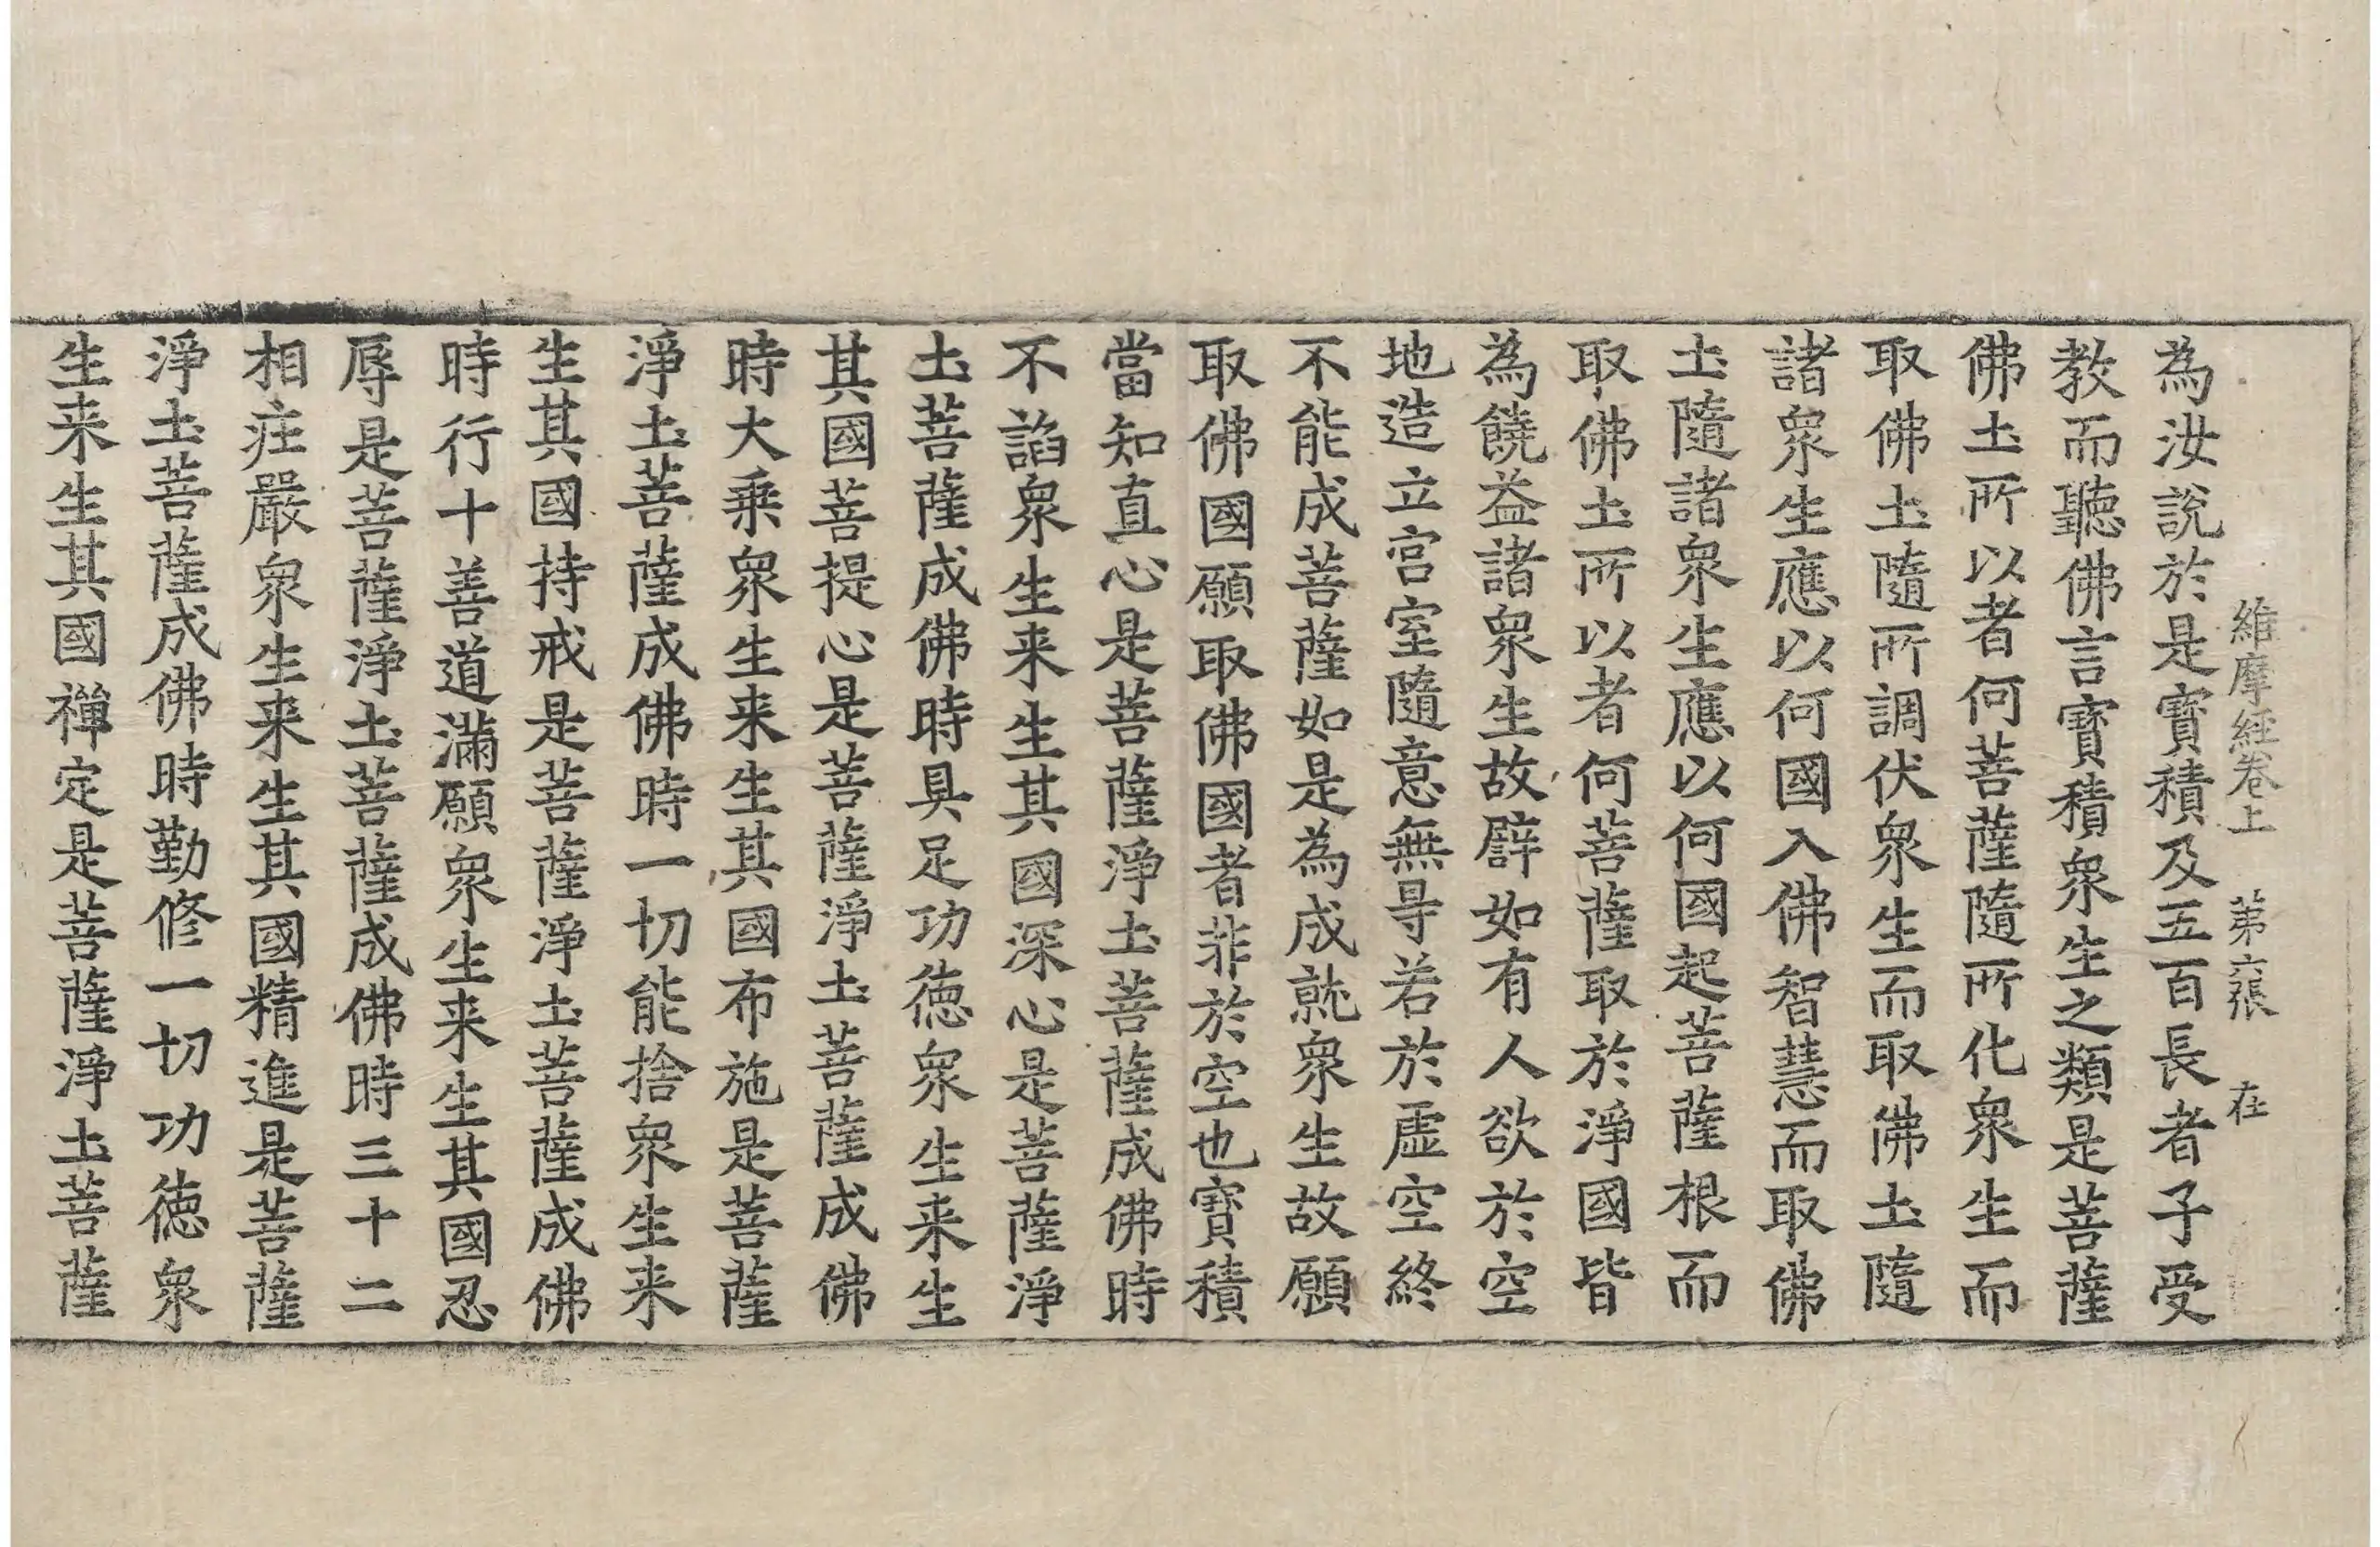 維摩經卷上 第六張 在
為汝說於是寳積及五百長者子受
教而聽佛言寳積衆生之類是菩薩
佛土所以者何菩薩隨所化衆生而
取佛土隨所調伏衆生而取佛土隨
諸衆生應以何國入佛智慧而取佛
土隨諸衆生應以何國起菩薩根而
取佛土所以者何菩薩取於淨國皆
為饒益諸衆生故譬如有人欲於空
地造立宮室隨意無㝵若於虛空終
不能成菩薩如是為成就衆生故願
取佛國願取佛國者非於空也寳積
當知直心是菩薩淨土菩薩成佛時
不諂衆生来生其國深心是菩薩淨
土菩薩成佛時具足功德衆生来生
其國菩提心是菩薩淨土菩薩成佛
時大乗衆生来生其國布施是菩薩
淨土菩薩成佛時一切能捨衆生来
生其國持戒是菩薩淨土菩薩成佛
時行十善道滿願衆生来生其國忍
辱是菩薩淨土菩薩成佛時三十二
相疘嚴衆生来生其國精進是菩薩
淨土菩薩成佛時勤修一切功徳衆
生来生其國禪定是菩薩淨土菩薩